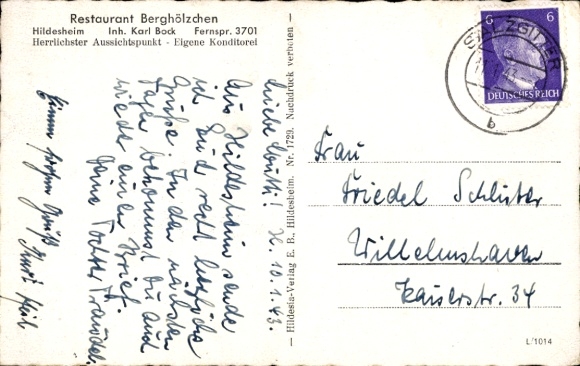 Restaurant Berghölzchen
Hildesheim Inh. Karl Bock Fernspr. 3701
Herrlichster Aussichtspunkt - Eigene Konditorei
Liebe Mutti! H. 10.1.43.
Aus Hildesheim sende
ich Euch recht herzliche
Grüße. In den nächsten
Tagen bekommst Du auch
wieder einen Brief.
Deine Tochter Traudel.
Einen frohen Gruß
Kurt
— Hildesia-Verlag E. B., Hildesheim. Nr. 1729. Nachdruck verboten —
SALZGITTER
b
6 6
DEUTSCHES REICH
Frau
Friedel Schlüter
Wilhelmshaven
Kaiserstr. 34
L/1014